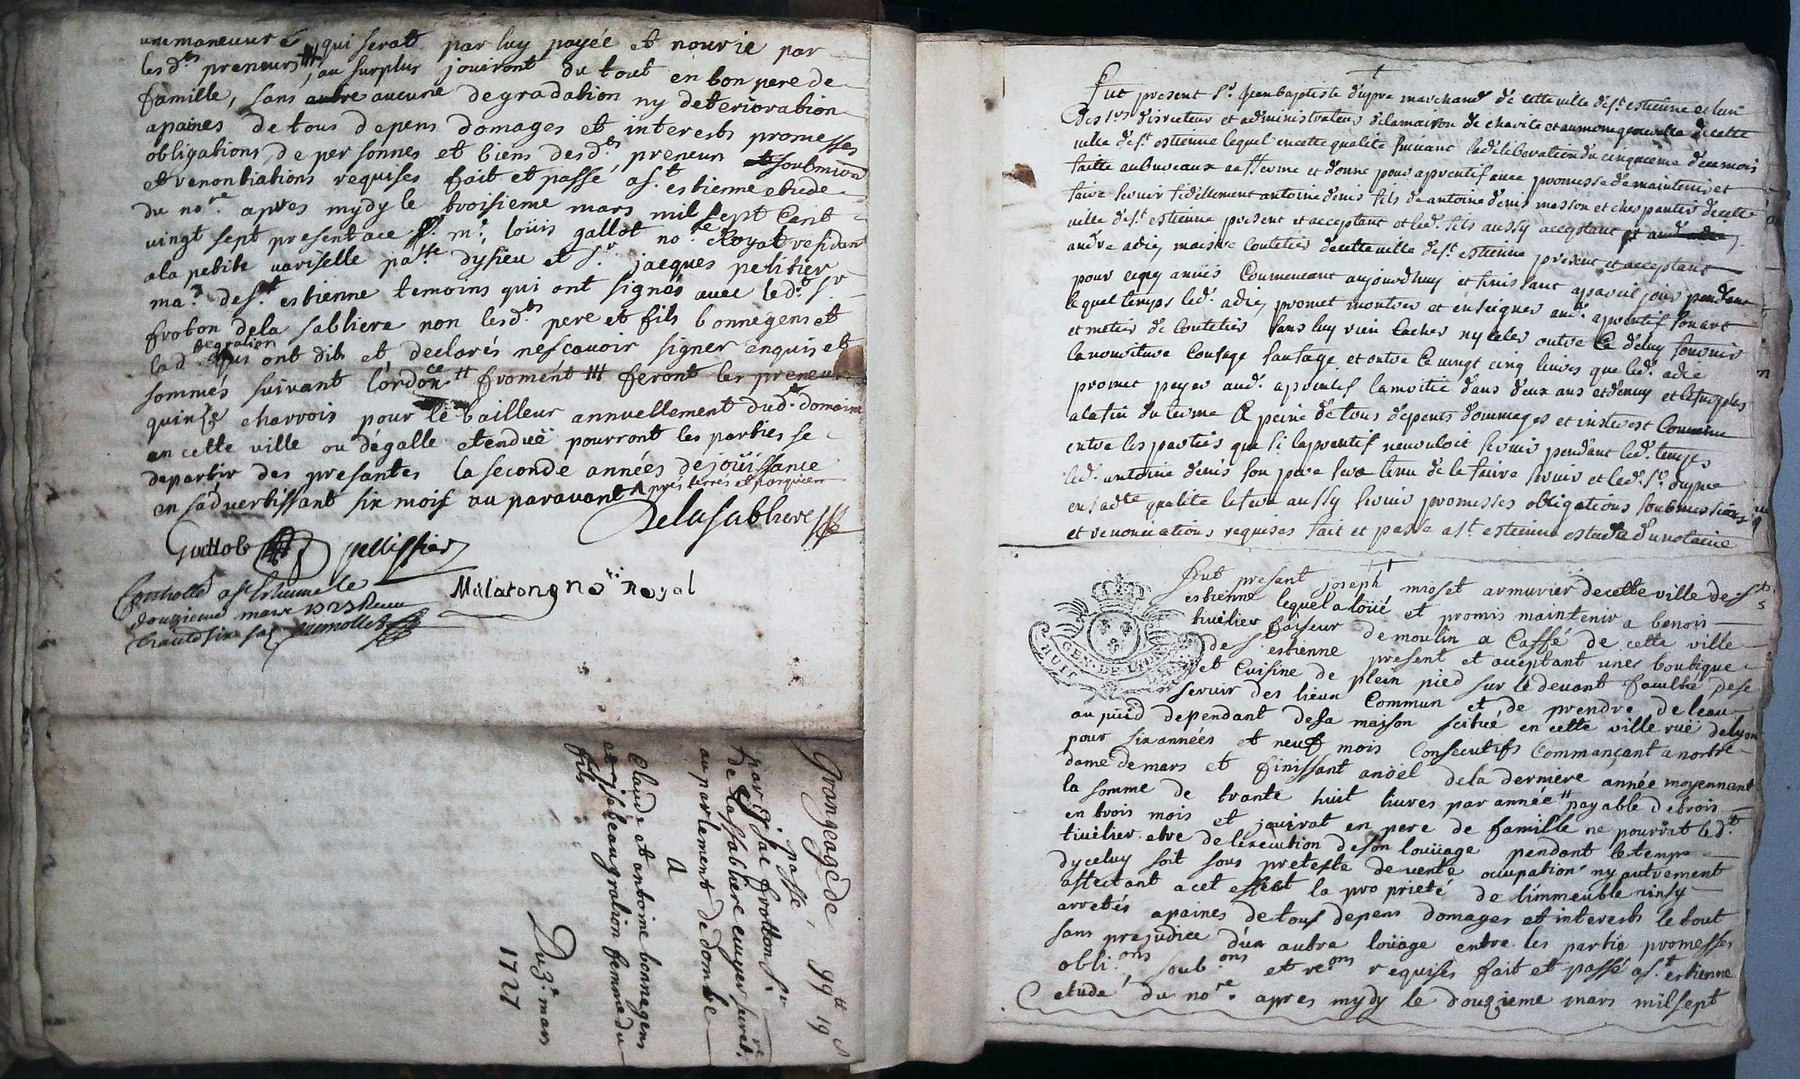 une maneuvre & qui serat par luy payée et nourie par
les d.ts preneurs, au surplus jouiront du tout en bon pere de
famille, sans aucune degradation ny deterioration
apaines de tous depens domages et interests promesses
obligations de personnes et biens desd.ts preneur soubmion
et renontiations requises fait et passé a s.t estienne etude
du no.re apres mydy le troisieme mars mil sept cent
vingt sept present ace m.e loüis gallot no.re Royal residant
a la petite variselle pa.sse dysieu et s.r jacques pelitier
ma.d de s.t estienne temoins qui ont signés avec led.t s.r
froton dela sabliere non lesd.ts pere et fils bonnegens et
lad. gration qui ont dit et declarés nescavoir signer enquis et
sommés suivant l'ordon.ce froment feront les preneur
quinze charrois pour le bailleur annuellement dud.t domaine
en cette ville ou degalle etenduë pourront les parties se
departir des presantes la seconde années de joüissance
en sadvertissant six mois au paravant prés terres et
Delasabliere
Gallot pellissier
Malaton no.re Royal
Controllé a s.t Estienne le
douzieme mars 1727 Receu
Grangeage de 99.tt 19 s
passe,
par s.r jac frotton s.r
de la sabliere cuyer
au parlement de dombe
A
Claude et antoine bonnegens
et jsabeau gration femme du
fils
Du 3.e mars
1727
Fut present s.r Jean baptiste dupré marchand de cette ville de s.t estienne et lun
des s.rs directeur et administrateur de la maison de charité et aumone de cette
ville de s.t estienne lequel en cette qualité suivant la deliberation du cinquieme du mois
faitte au bureau a afferme et donné pour aprentif avec promesse de maintenir et
faire servir fidellement antoine denis fils de antoine denis masson et de cette
ville de s.t estienne present et acceptant et led. fils aussy acceptant
andre adiez maistre coutelier de cette ville de s.t estienne present et acceptant
pour cinq années commencant aujourdhuy et finissant a pareil jour pendant
lequel temps led. adiez promet montrer et enseigner aud. aprentif son art
et metier de coutelier sans luy rien cacher ny celer outre ce deluy fournir
la nourriture et outre ce vingt cinq livres que led. adie
promet payer aud. aprentif la moitié dans deux ans et demy et le surplus
a la fin du terme A peine de tous depents dommages et interest
entre les parties que si laprentif ne vouloit servir pendant led. temps
led. antoine denis son pere sera tenu de le faire servir et led. s.r dupré
en sadte qualité le fera aussy servir promesses obligations soubmissions
et renonciations requises fait et passé a s.t estienne estude du notaire
Fut present joseph mioset armurier de cette ville de s.t
estienne lequel a loüé et promis maintenir a benoit
thivilier faiseur de moulin a Caffé de cette ville
de s.t estienne present et acceptant unes boutique
et cuisine de plein pied sur le devant faculté de se
servir des lieux Commun et de prendre de leau
au püid dependant de sa maison scitué en cette ville ruë de lyon
pour six années et neuf mois consecutifs Commançant a nostre
dame de mars et finissant anoël dela derniere année moyennant
la somme de trante huit livres par année payable de trois
en trois mois et jouirat en pere de famille ne pourrat led.t
tivilier etre de lexecution de son loüage pendant le temps
dyceluy soit sous preteste de vente ocupation ny autrement
affectant a cet effect la proprieté de limmeuble ninsy
arretés apaines de tous depens domages et interests le tout
sans prejudice d'un autre loüage entre les partie promesses
obli.ons, soub.ons et re.ons requises fait et passé a s.t estienne
etude du no.re apres mydy le douzieme mars mil sept
GEN. DE
HUIT